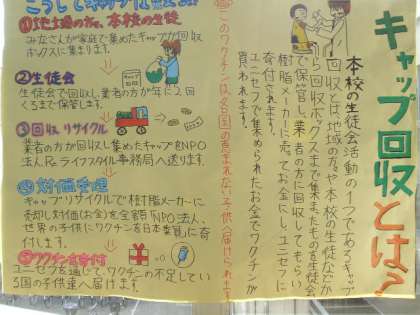 キャップ回収とは?
本校の生徒会活動の1つであるキャップ
回収とは地域の方々や本校の生徒などか
ら回収ボックスまで集またものを生徒会
で保管し業者の方に回収してもらい
樹脂メーカーに売ってお金にしユニセフに
寄付されます。
ユニセフで集められたお金でワクチンが
買われます。
このワクチンは各国の恵まれない子供へ届けられます。
①地域の方、本校の生徒
みなさんが家庭で集めたキャップが回収
ボックスに集まります。
②生徒会
生徒会で回収し、業者の方が年に2回
くるまで保管します。
③回収、リサイクル
業者の方が回収し集めたキャップをNPO
法人Reライフスタイル事務局へ送ります。
④対価受理
キャップリサイクルで樹脂メーカーに
売却し対価(お金)を全額NPO法人、
世界の子供にワクチンを日本委員に寄
付します。
⑤ワクチンを寄付
ユニセフを通じてワクチンの不足してい
る国の子供達へ届けます。